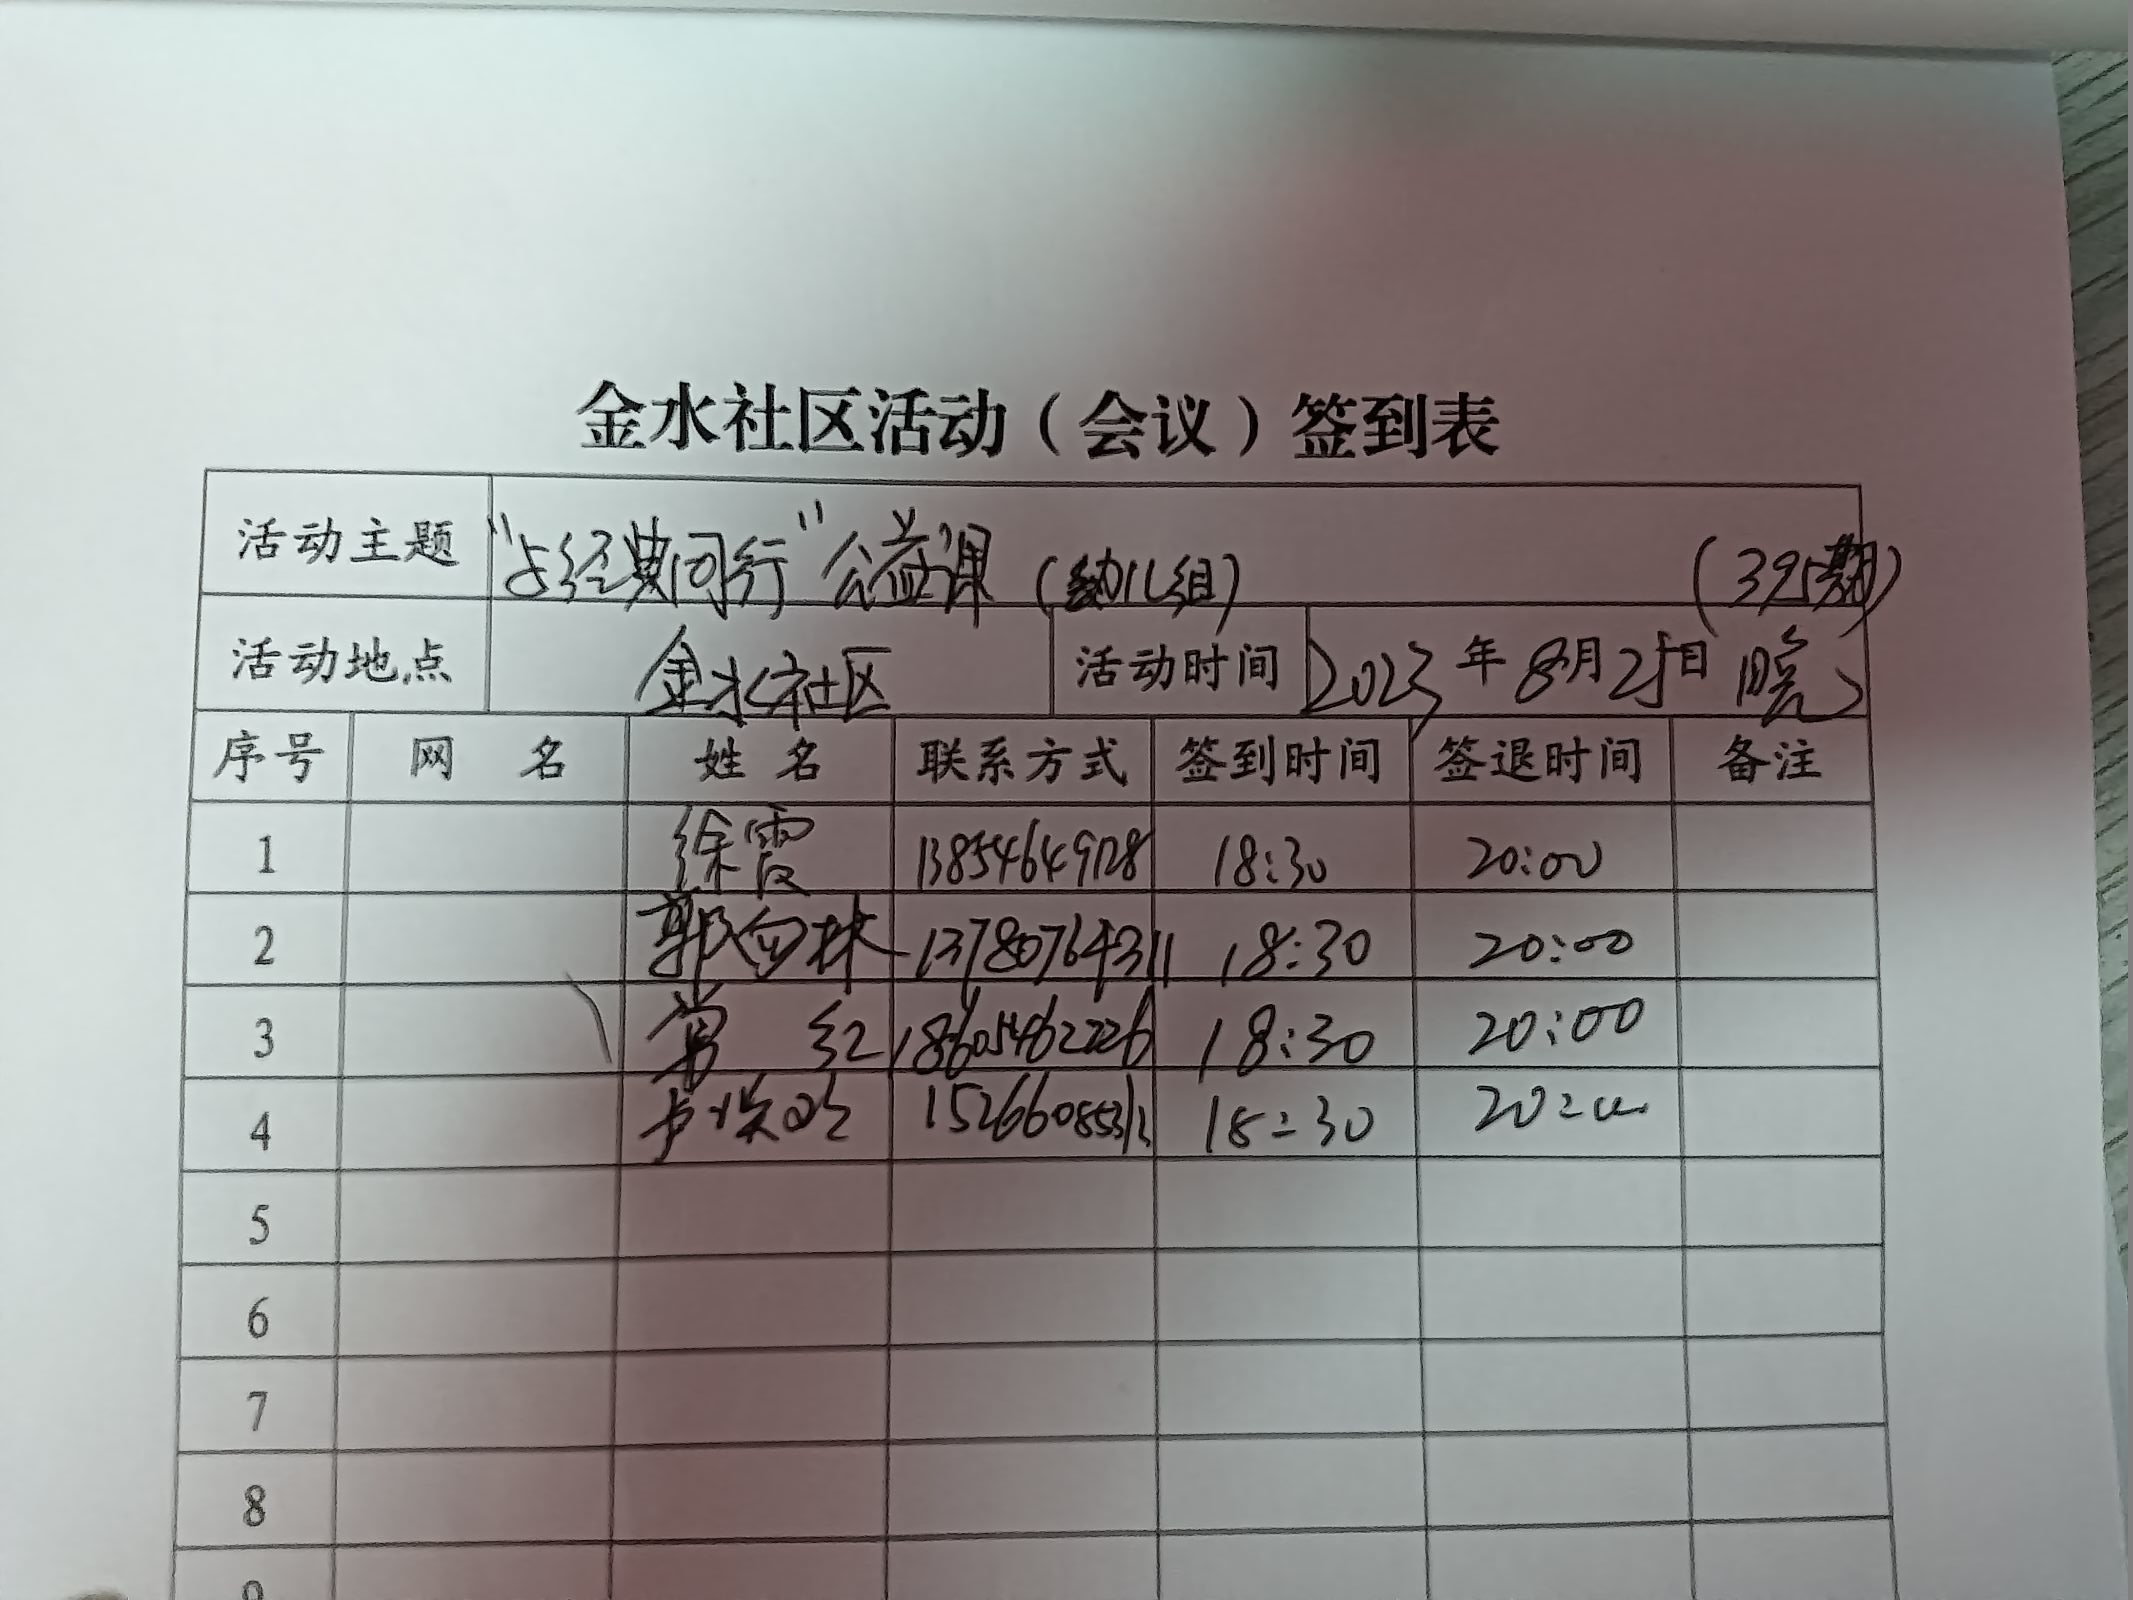 金水社区活动（会议）签到表
活动主题 “与经典同行”公益课（幼儿组） （395期）
活动地点 金水社区 活动时间 2023年8月25日 晚
序号 网 名 姓 名 联系方式 签到时间 签退时间 备注
1 徐霞 13854649128 18:30 20:00
2 郭 林 13780764311 18:30 20:00
3 红 18605462226 18:30 20:00
4 15266085312 18:30 20:00
5
6
7
8
9